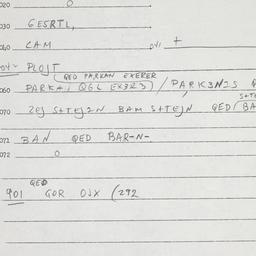 020 0
030 GESRTL,
040 CAM 041 +
045- PLOJT
(QED PARKAN EXERER
060 PARK+1 QGL EXER3) / PARK3NIS
S+TE
070 2EJ S+TEJ2N BAM S+TEJN QED/BA
071 BAN QED BAR-N-.
072 0
QED
901 GOR OJX (292